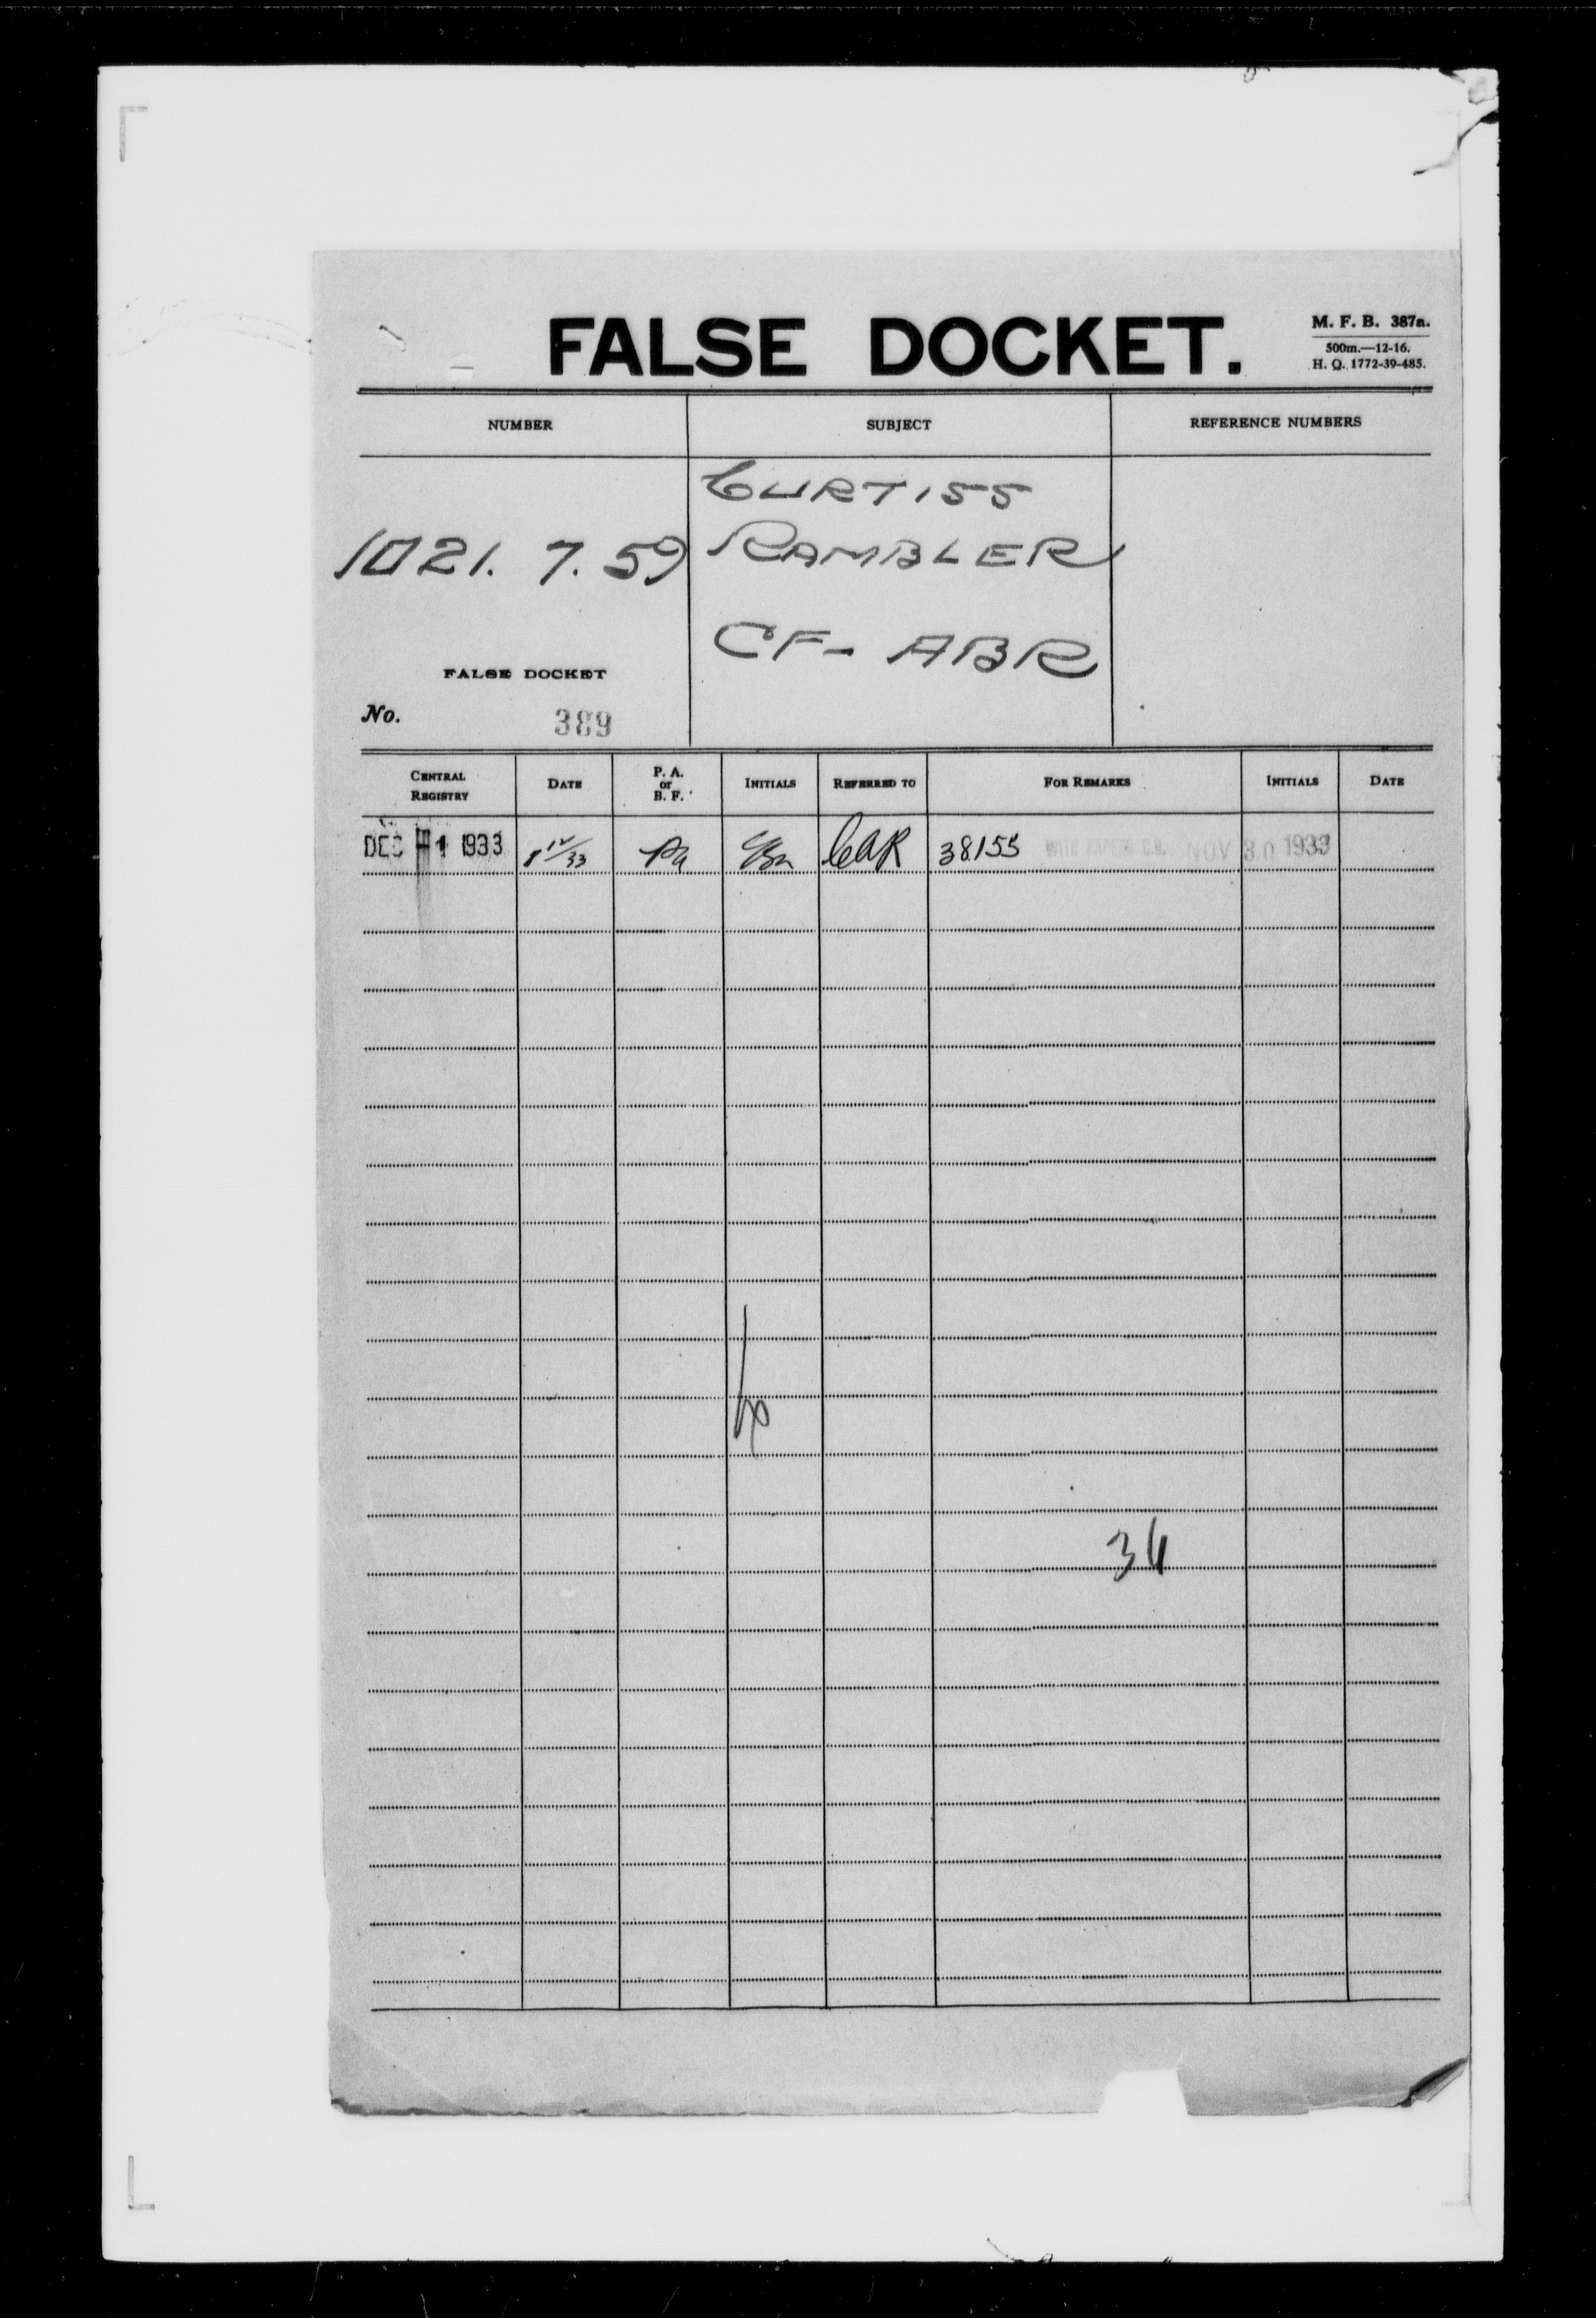 FALSE DOCKET.
M. F. B. 387a.
500m.—12-16.
H. Q. 1772-39-485.
NUMBER SUBJECT REFERENCE NUMBERS
CURTISS
1021. 7. 59 RAMBLER
CF- ABR
FALSE DOCKET
No. 389
CENTRAL REGISTRY DATE P. A. or B. F. INITIALS REFERRED TO FOR REMARKS INITIALS DATE
DEC 1 1933 8 12/33 PA CAR 38155 WITH PAPERS C.R. NOV 30 1933